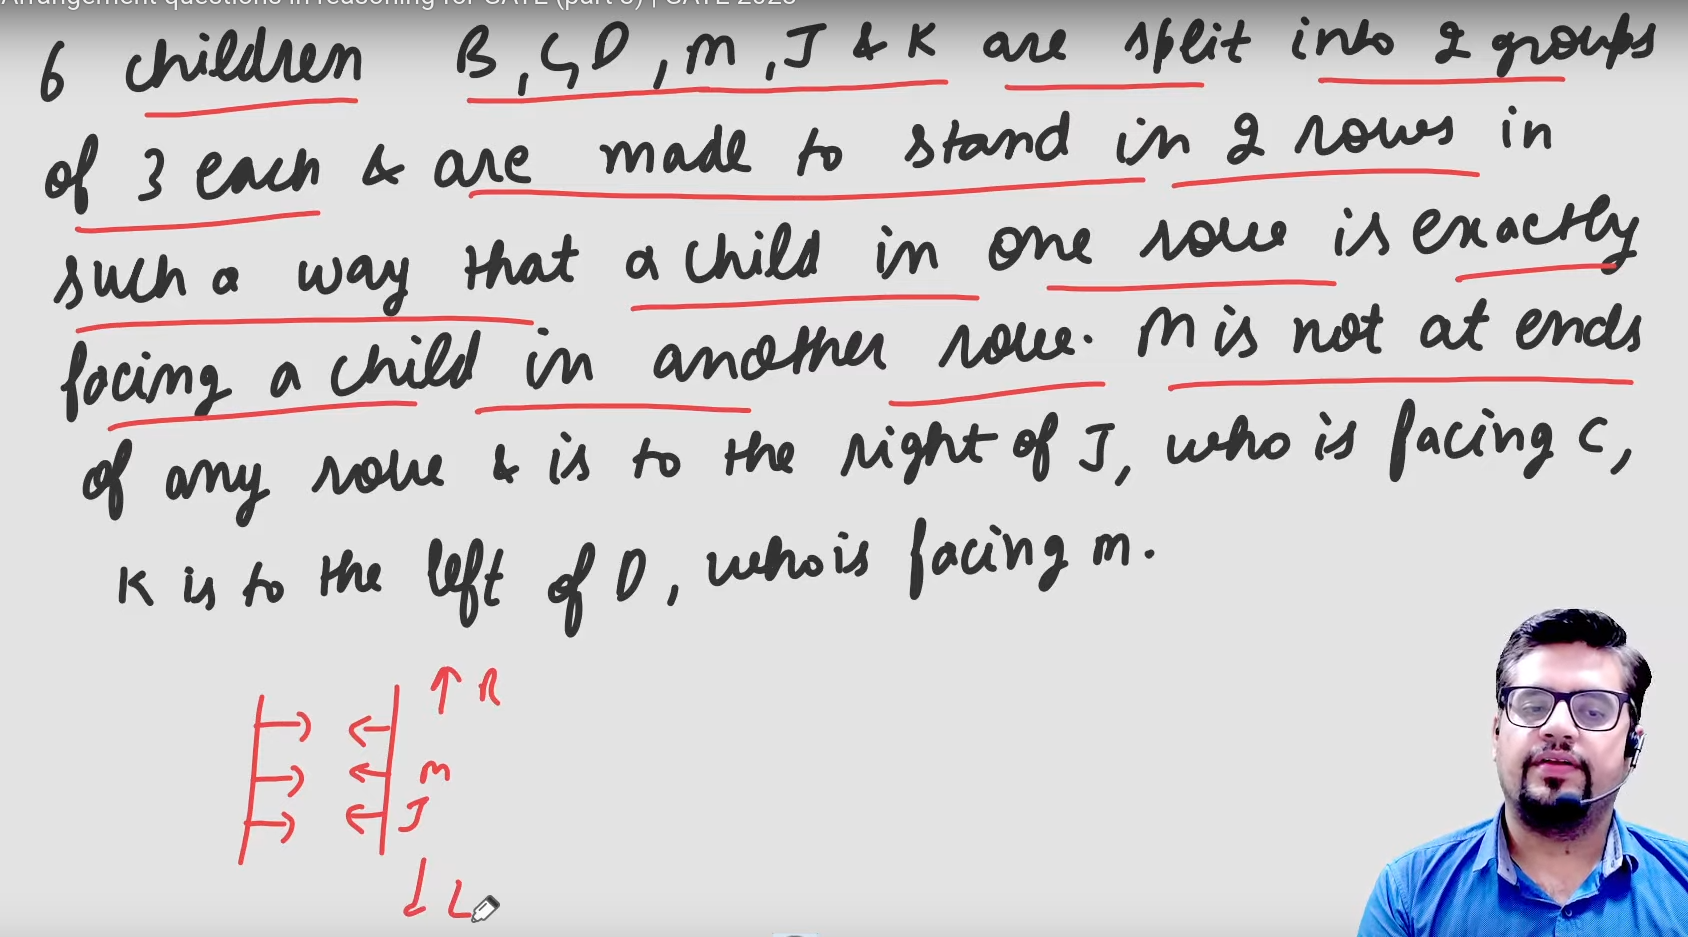 Arrangement questions in reasoning for GATE (part 3) | GATE 2023
6 children B, C, D, M, J & K are split into 2 groups
of 3 each & are made to stand in 2 rows in
such a way that a child in one row is exactly
facing a child in another row. M is not at ends
of any row & is to the right of J, who is facing C,
K is to the left of D, who is facing m.
R
m
J
L